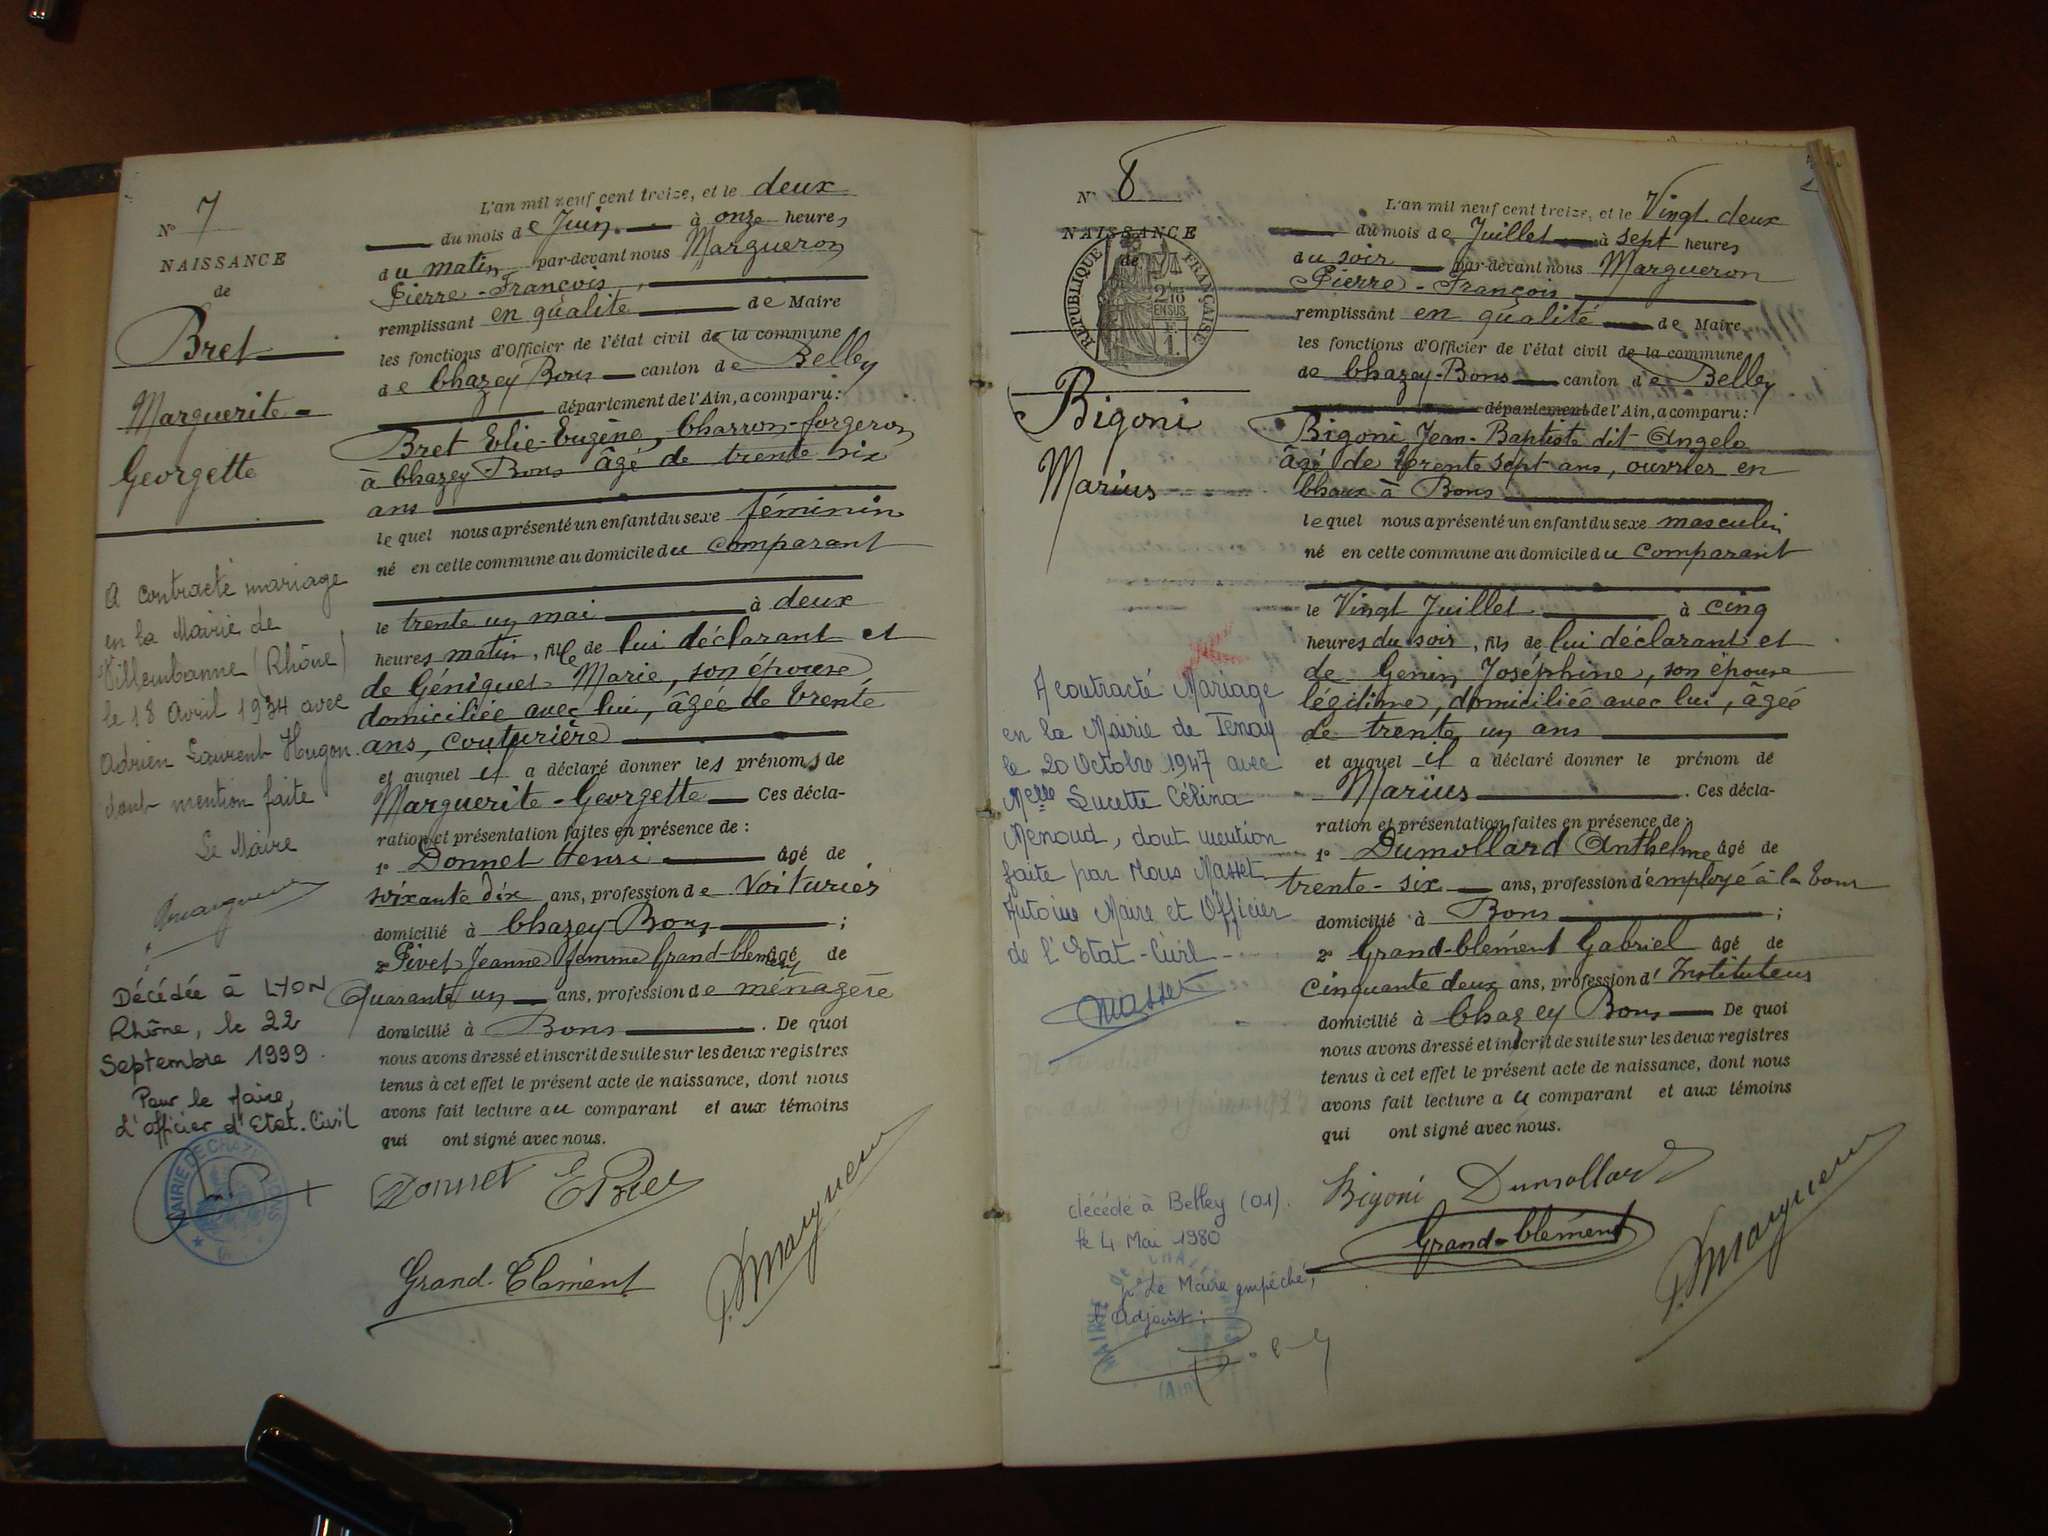 N° 7
NAISSANCE
de
Bret
Marguerite-
Georgette
A contracté mariage
en la Mairie de
Villeurbanne (Rhône)
le 18 Avril 1934 avec
Adrien Laurent Hugon.
dont mention faite
Le Maire
Décédée à LYON
Rhône, le 22
Septembre 1999.
Pour le Maire,
L'officier d'Etat-Civil
L'an mil neuf cent treize, et le deux
du mois de Juin à onze heures
du matin par-devant nous Margueron
Pierre-François,
remplissant en qualité de Maire
les fonctions d'Officier de l'état civil de la commune
de Chazey Bons canton de Belley
département de l'Ain, a comparu:
Bret Elie-Eugène, Charron-forgeron
à Chazey-Bons âgé de trente six
ans
lequel nous a présenté un enfant du sexe féminin
né en cette commune au domicile du comparant
le trente un mai à deux
heures matin, fille de lui déclarant et
de Géniquet Marie, son épouse
domiciliée avec lui, âgée de trente
ans, couturière
et auquel il a déclaré donner les prénoms de
Marguerite-Georgette Ces décla-
ration et présentation faites en présence de:
1° Donnet Henri âgé de
soixante dix ans, profession de Voiturier
domicilié à Chazey-Bons ;
2° Pivet Jeanne femme Grand-Clément âgé de
Quarante un ans, profession de ménagère
domicilié à Bons. De quoi
nous avons dressé et inscrit de suite sur les deux registres
tenus à cet effet le présent acte de naissance, dont nous
avons fait lecture au comparant et aux témoins
qui ont signé avec nous.
Donnet E Bret
Grand-Clément P. Margueron
N° 8
NAISSANCE
de
RÉPUBLIQUE FRANÇAISE
2/10
EN SUS
Bigoni
Marius
A contracté Mariage
en la Mairie de Tenay
le 20 Octobre 1947 avec
Melle Lucette Célina
Menoud, dont mention
faite par Nous Masset
Antoine Maire et Officier
de l'Etat-Civil
Masset
décédé à Belley (01).
le 4 Mai 1980
p. Le Maire empêché,
l'Adjoint:
L'an mil neuf cent treize, et le Vingt deux
du mois de Juillet à sept heures
du soir par-devant nous Margueron
Pierre-François
remplissant en qualité de Maire
les fonctions d'Officier de l'état civil de la commune
de Chazey-Bons canton de Belley
département de l'Ain, a comparu:
Bigoni Jean-Baptiste dit Angelo
âgé de trente sept ans, ouvrier en
Chaux à Bons
lequel nous a présenté un enfant du sexe masculin
né en cette commune au domicile du comparant
le Vingt Juillet à cinq
heures du soir, fils de lui déclarant et
de Genin Joséphine, son épouse
légitime, domiciliée avec lui, âgée
de trente un ans
et auquel il a déclaré donner le prénom de
Marius. Ces décla-
ration et présentation faites en présence de:
1° Dumollard Anthelme âgé de
trente-six ans, profession d'employé à la
domicilié à Bons ;
2° Grand-Clément Gabriel âgé de
cinquante deux ans, profession d'Instituteur
domicilié à Chazey Bons De quoi
nous avons dressé et inscrit de suite sur les deux registres
tenus à cet effet le présent acte de naissance, dont nous
avons fait lecture au comparant et aux témoins
qui ont signé avec nous.
Bigoni Dumollard
Grand-Clément P. Margueron